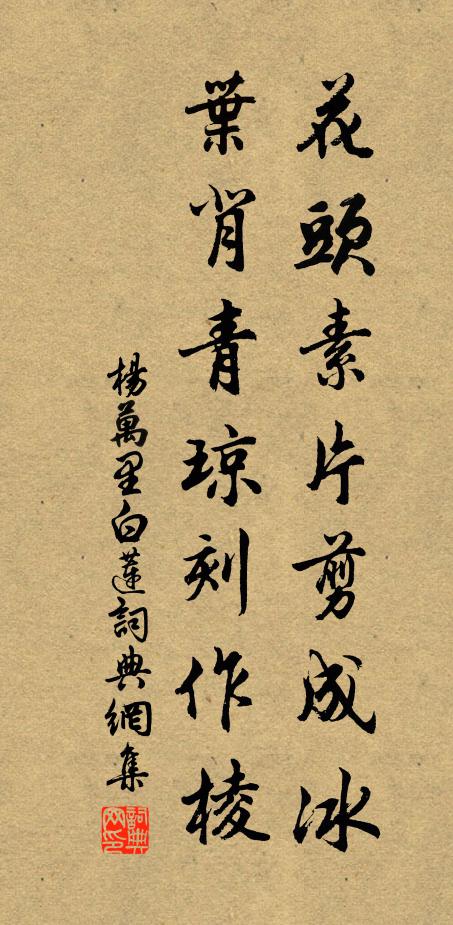 花頭素片剪成冰
葉背青琼刻作棱
楊萬里白蓮詞典網集
詞典网印